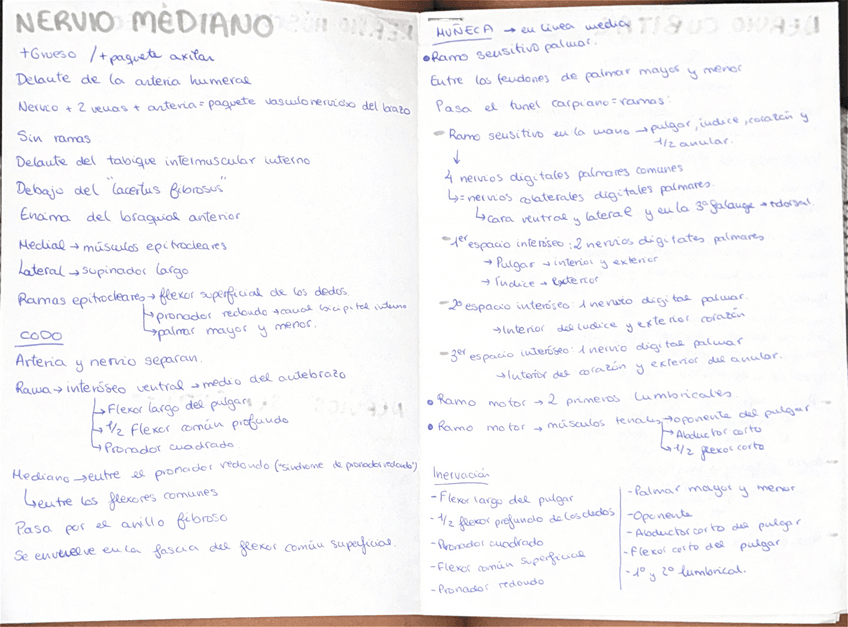 NERVIO MÉDIANO
+Grueso / + paquete axilar
Delante de la arteria humeral
Nervio + 2 venas + arteria = paquete vasculonervioso del brazo
Sin ramas
Delante del tabique intermuscular interno
Debajo del "lacertus fibrosus"
Encima del braquial anterior
Medial → músculos epitrocleares
Lateral → supinador largo
Ramas epitrocleares → flexor superficial de los dedos
→ pronador redondo → canal bicipital interno
→ palmar mayor y menor.
CODO
Arteria y nervio separan.
Rama → interóseo ventral → medio del antebrazo
→ Flexor largo del pulgar
→ 1/2 Flexor común profundo
→ Pronador cuadrado
Mediano → entre el pronador redondo ("síndrome de pronador redondo")
↳ entre los flexores comunes
Pasa por el anillo fibroso
Se envuelve en la fascia del flexor común superficial.
MUÑECA → en línea media
• Ramo sensitivo palmar.
Entre los tendones de palmar mayor y menor
Pasa el tunel carpiano = ramos:
- Ramo sensitivo en la mano → pulgar, indice, corazón y
1/2 anular.
↓
4 nervios digitales palmares comunes
↳ = nervios colaterales digitales palmares.
↳ cara ventral y lateral y en la 3º falange → dorsal.
- 1er espacio interóseo: 2 nervios digitales palmares
→ Pulgar → interior y exterior
→ Índice → Exterior
- 2º espacio interóseo 1 nervio digital palmar.
→ Interior del índice y exterior corazón
- 3er espacio interóseo: 1 nervio digital palmar
→ Interior del corazón y exterior del anular.
• Ramo motor → 2 primeros lumbricales.
• Ramo motor → músculos tenales → oponente del pulgar
→ Abductor corto
→ 1/2 flexor corto
Inervación
- Flexor largo del pulgar
- 1/2 flexor profundo de los dedos
- Pronador cuadrado
- Flexor común superficial
- Pronador redondo
- Palmar mayor y menor
- Oponente
- Abductor corto del pulgar
- Flexor corto del pulgar
- 1º y 2º lumbrical.